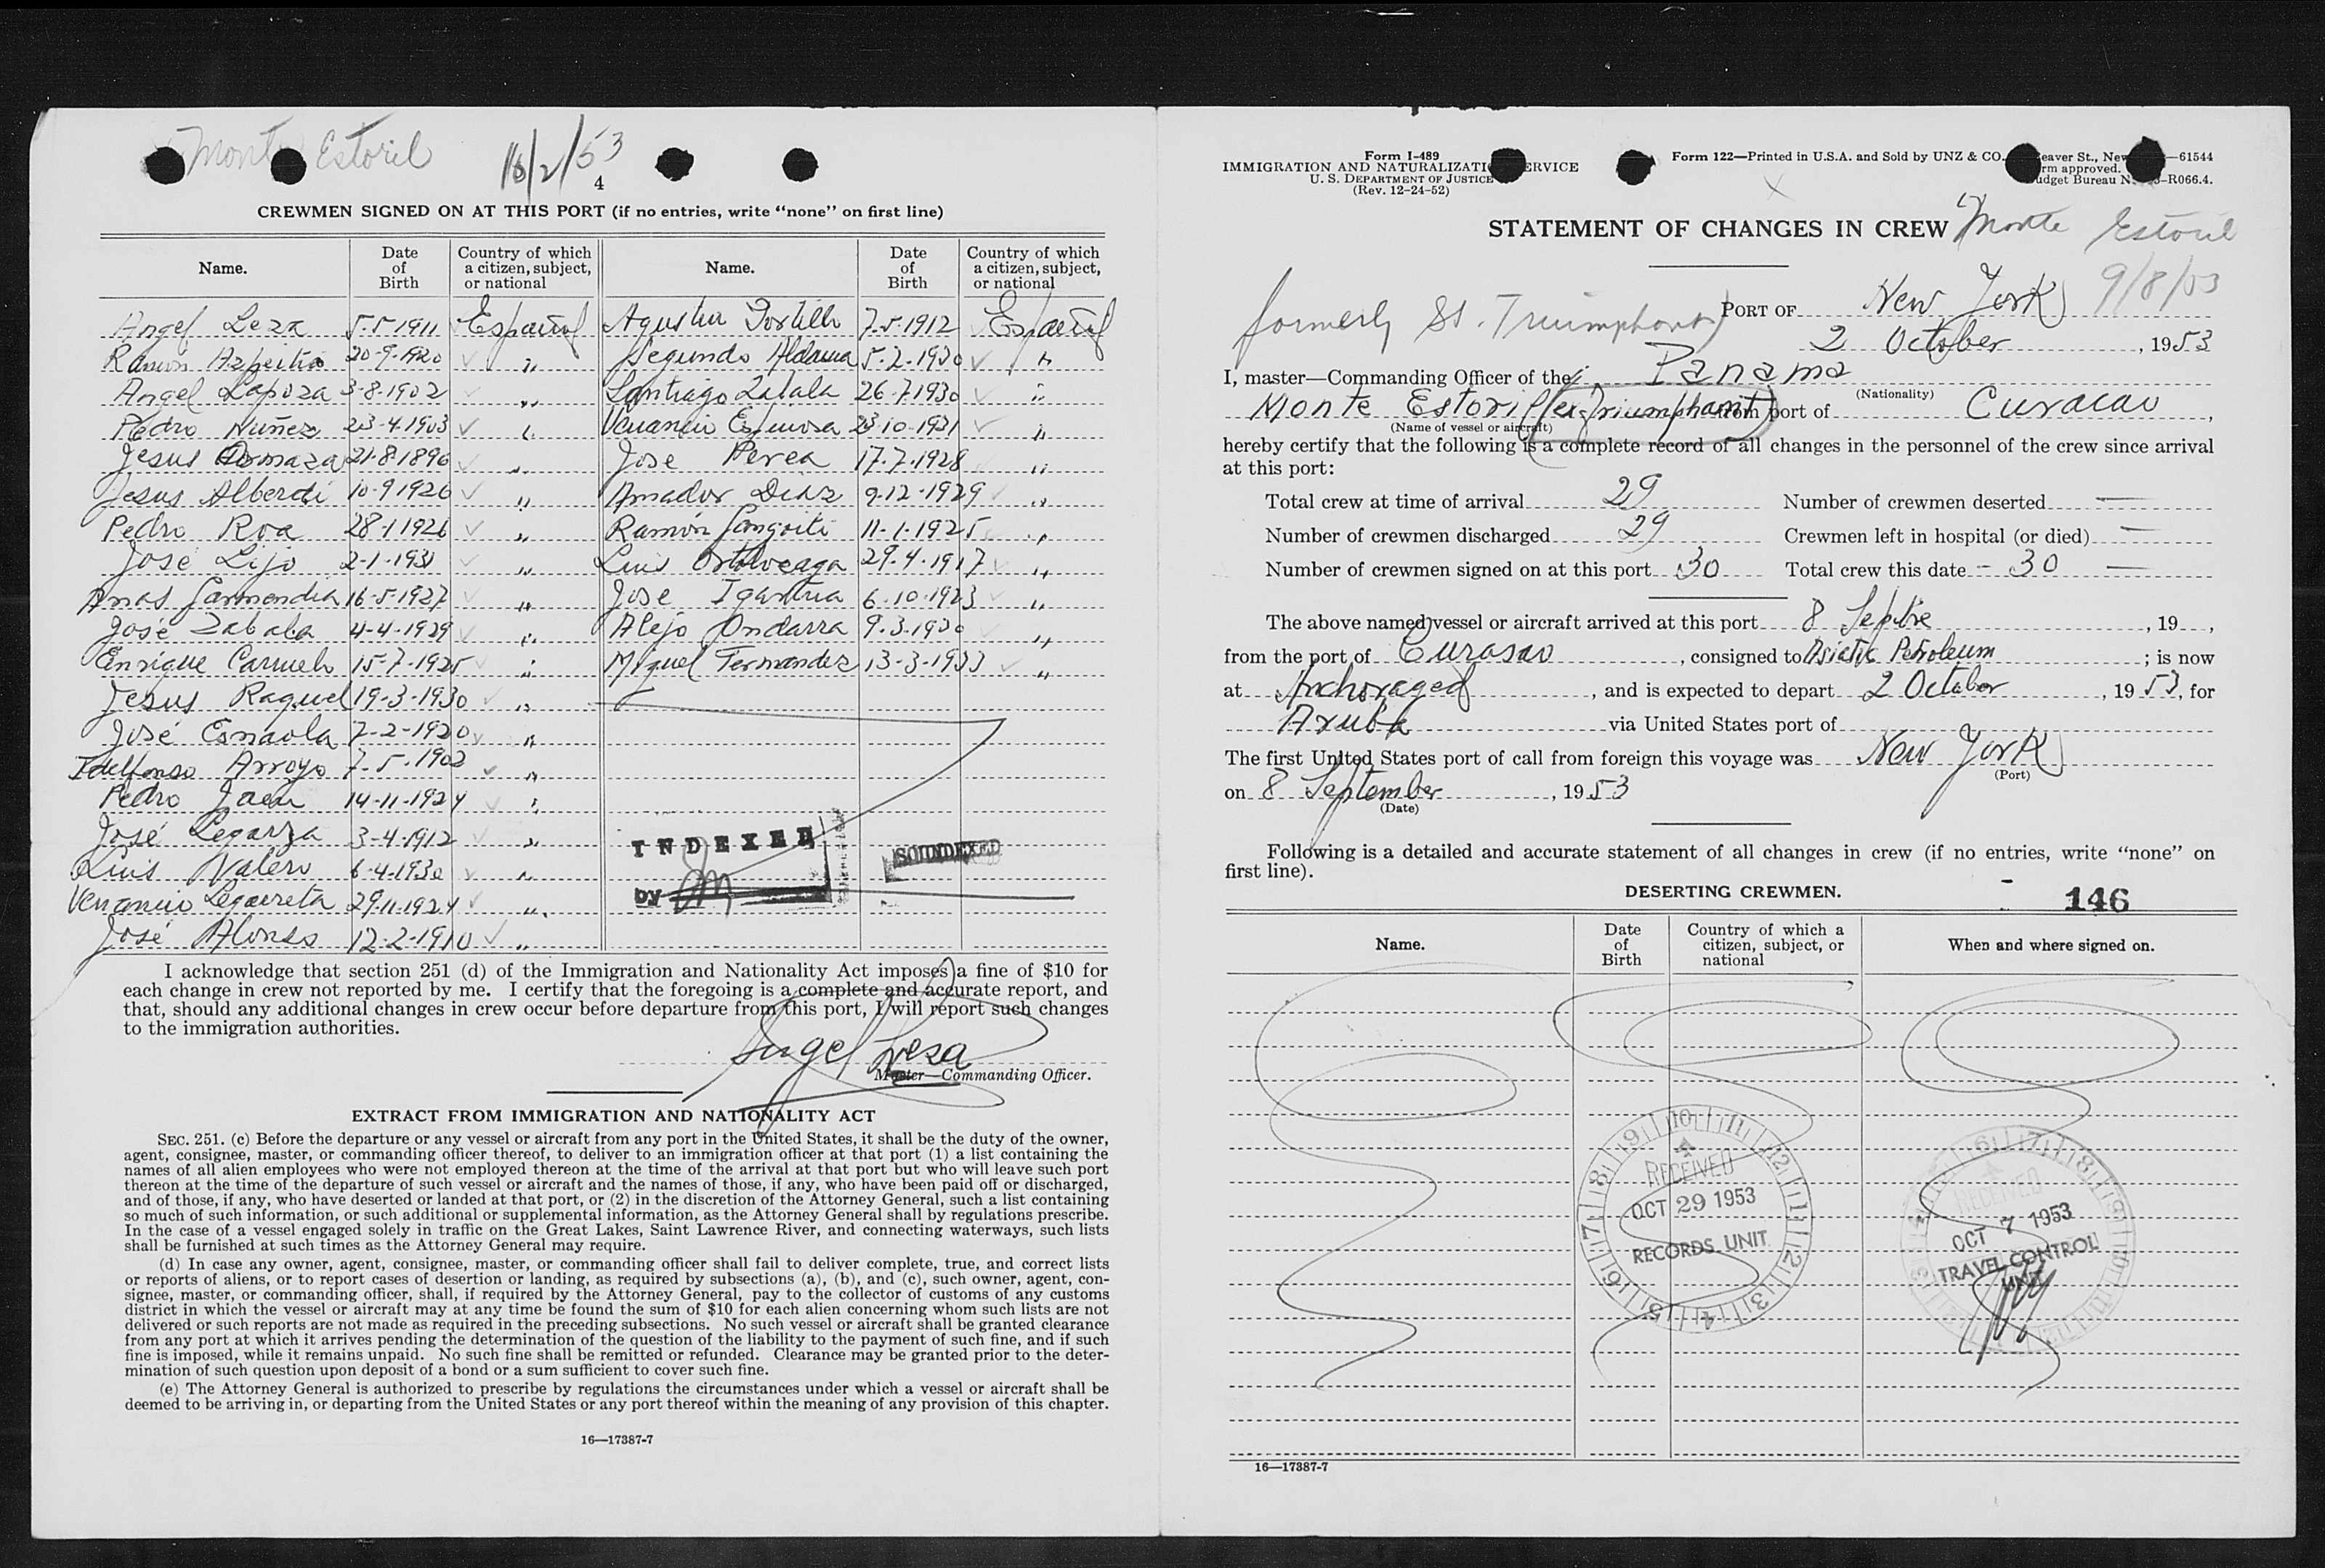 Monte Estoril 10/2/53
4
CREWMEN SIGNED ON AT THIS PORT (if no entries, write “none” on first line)
Name. Date of Birth Country of which a citizen, subject, or national Name. Date of Birth Country of which a citizen, subject, or national
Angel Leza 5-5-1911 Español Agustin Portillo 7-5-1912 Español
Ramón Azpeitia 20-9-1920 " Segundo Aldama 5-2-1930 "
Angel Lapoza 3-8-1902 " Santiago Zabala 26-7-1930 "
Pedro Nuñez 23-4-1903 " Venancio Espinosa 23-10-1931 "
Jesus Ormaza 21-8-1896 " Jose Perea 17-7-1928 "
Jesus Alberdi 10-9-1926 " Amador Diaz 9-12-1929 "
Pedro Roa 28-1-1926 " Ramón Gangoiti 11-1-1925 "
José Lijo 2-1-1931 " Luis 29-4-1917 "
Garmendia 16-5-1927 " Jose Igartua 6-10-1923 "
José Zabala 4-4-1929 " Alejo Ondarra 9-3-1930 "
Enrique Carmelo 15-7-1925 " Miguel Fernandez 13-3-1933 "
Jesus Raquel 19-3-1930 "
José Esnaola 7-2-1920 "
Ildelfonso Arroyo 7-5-1902 "
Pedro Jaen 14-11-1924 "
José Legarza 3-4-1912 "
Luis Valero 6-4-1930 "
Venancio Legarreta 29-11-1924 "
José Alonso 12-2-1910 "
INDEXED
by
SOUNDEXED
I acknowledge that section 251 (d) of the Immigration and Nationality Act imposes a fine of $10 for
each change in crew not reported by me. I certify that the foregoing is a complete and accurate report, and
that, should any additional changes in crew occur before departure from this port, I will report such changes
to the immigration authorities.
Angel Leza
Master—Commanding Officer.
EXTRACT FROM IMMIGRATION AND NATIONALITY ACT
SEC. 251. (c) Before the departure or any vessel or aircraft from any port in the United States, it shall be the duty of the owner,
agent, consignee, master, or commanding officer thereof, to deliver to an immigration officer at that port (1) a list containing the
names of all alien employees who were not employed thereon at the time of the arrival at that port but who will leave such port
thereon at the time of the departure of such vessel or aircraft and the names of those, if any, who have been paid off or discharged,
and of those, if any, who have deserted or landed at that port, or (2) in the discretion of the Attorney General, such a list containing
so much of such information, or such additional or supplemental information, as the Attorney General shall by regulations prescribe.
In the case of a vessel engaged solely in traffic on the Great Lakes, Saint Lawrence River, and connecting waterways, such lists
shall be furnished at such times as the Attorney General may require.
(d) In case any owner, agent, consignee, master, or commanding officer shall fail to deliver complete, true, and correct lists
or reports of aliens, or to report cases of desertion or landing, as required by subsections (a), (b), and (c), such owner, agent, con-
signee, master, or commanding officer, shall, if required by the Attorney General, pay to the collector of customs of any customs
district in which the vessel or aircraft may at any time be found the sum of $10 for each alien concerning whom such lists are not
delivered or such reports are not made as required in the preceding subsections. No such vessel or aircraft shall be granted clearance
from any port at which it arrives pending the determination of the question of the liability to the payment of such fine, and if such
fine is imposed, while it remains unpaid. No such fine shall be remitted or refunded. Clearance may be granted prior to the deter-
mination of such question upon deposit of a bond or a sum sufficient to cover such fine.
(e) The Attorney General is authorized to prescribe by regulations the circumstances under which a vessel or aircraft shall be
deemed to be arriving in, or departing from the United States or any port thereof within the meaning of any provision of this chapter.
16—17387-7
Form I-489
IMMIGRATION AND NATURALIZATION SERVICE
U. S. DEPARTMENT OF JUSTICE
(Rev. 12-24-52)
Form 122—Printed in U.S.A. and Sold by UNZ & CO. eaver St., New —61544
rm approved.
udget Bureau N -R066.4.
STATEMENT OF CHANGES IN CREW Monte Estoril
9/8/53
PORT OF New York
formerly SS. Triumphant)
2 October, 1953
I, master—Commanding Officer of the Panama
(Nationality)
Monte Estoril (ex Triumphant) from port of Curacao,
(Name of vessel or aircraft)
hereby certify that the following is a complete record of all changes in the personnel of the crew since arrival
at this port:
Total crew at time of arrival 29 Number of crewmen deserted —
Number of crewmen discharged 29 Crewmen left in hospital (or died) —
Number of crewmen signed on at this port 30 Total crew this date - 30 —
The above named vessel or aircraft arrived at this port 8 Septbre, 19 ,
from the port of Curasao, consigned to Asiatic Petroleum; is now
at Anchoraged, and is expected to depart 2 October, 1953, for
Aruba via United States port of
The first United States port of call from foreign this voyage was New York
(Port)
on 8 September, 1953
(Date)
Following is a detailed and accurate statement of all changes in crew (if no entries, write “none” on
first line).
DESERTING CREWMEN.
146
Name. Date of Birth Country of which a citizen, subject, or national When and where signed on.
RECEIVED
OCT 29 1953
RECORDS UNIT
RECEIVED
OCT 7 1953
TRAVEL CONTROL
UNIT
16—17387-7